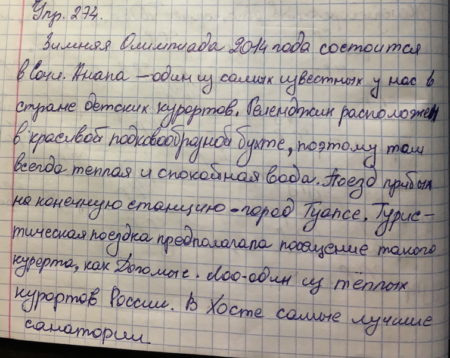 Упр. 274.
Зимняя Олимпиада 2014 года состоится
в Сочи. Анапа – один из самых известных у нас в
стране детских курортов. Геленджик расположен
в красивой подковообразной бухте, поэтому там
всегда теплая и спокойная вода. Поезд прибыл
на конечную станцию – город Туапсе. Турис-
тическая поездка предполагала посещение такого
курорта, как Дагомыс. Лоо – один из тёплых
курортов России. В Хосте самые лучшие
санатории.